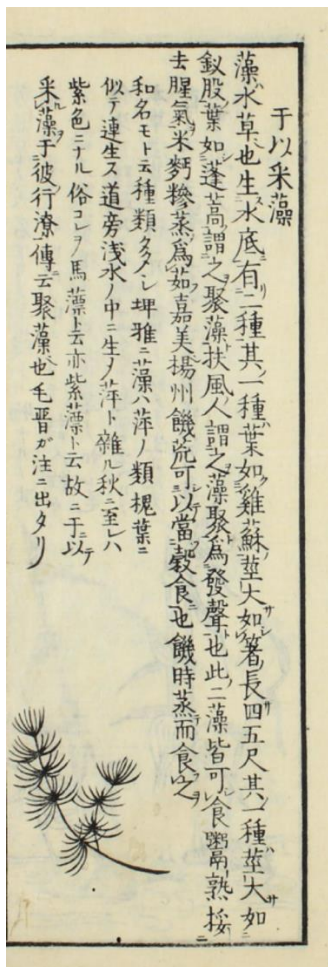 于以采藻
藻ハ水草也生ス水底ニ有リ二種其ノ一種ハ葉如ク雞蘇ノ莖大サ如シ箸ノ長四五尺其ノ一種ハ莖大サ如
釵股ノ葉如シ蓬蒿ノ謂之ヲ聚藻ト扶風ノ人謂之ヲ藻聚ト爲發聲也此ノ二藻皆可シ食フ鬻熟挼ニ
去腥氣ヲ米麪糝蒸爲茹嘉美揚州饑荒可シ以テ當フ穀食ニ也饑時蒸而食フ之ヲ
和名モト云種類多々シ埤雅ニ藻ハ萍ノ類槐葉ニ
似テ連生ス道旁浅水ノ中ニ生ノ萍ト雜ル秋ニ至レハ
紫色ニナル俗コレヲ馬藻ト云亦紫藻ト云故ニ于以テ
采藻ヲ于彼ノ行潦ニ傳云聚藻也毛晋ガ注ニ出タリ